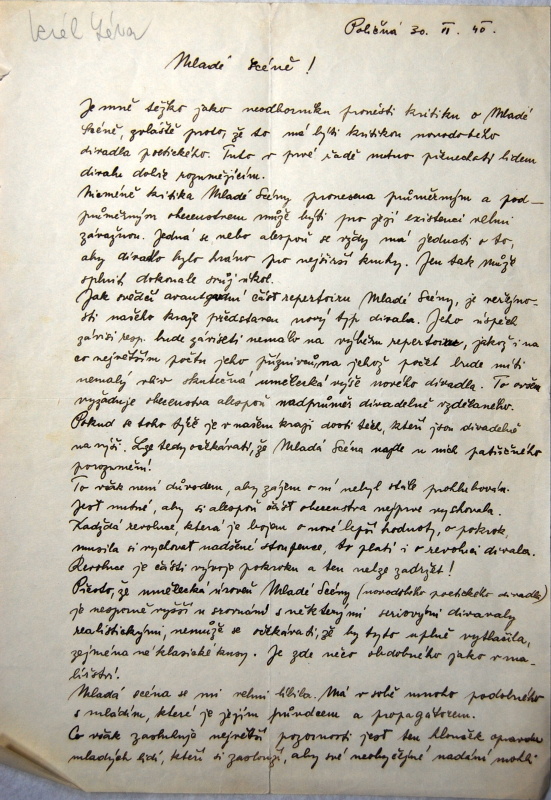 Poličná 30. VI. 40.
Mladé scéně!
Je mně těžko jako neodborníku pronésti kritiku o Mladé
scéně, zvláště proto, že to má býti kritikou novodobého
divadla poetického. Tuto v prvé řadě nutno přenechati lidem
divadlu dobře rozumějícím.
Nicméně kritika Mladé Scény pronesena průměrným a pod-
průměrným obecenstvem může býti pro její existenci velmi
závažnou. Jedná se nebo alespoň se vždy má jednati o to,
aby divadlo bylo hráno pro nejširší kruhy. Jen tak může
splniti dokonale svůj úkol.
Jak svědčí avantgardní část repertoiru Mladé Scény, je veřejno-
sti našeho kraje představen nový typ divadla. Jeho úspěch
závisí resp. bude záviseti nemálo na výběru repertoiru, jakož i na
co největším počtu jeho příznivců, na jehož počet bude míti
nemalý vliv skutečná umělecká výše nového divadla. To ovšem
vyžaduje obecenstva alespoň nadprůměr divadelně vzdělaného.
Pokud se toho týče je v našem kraji dosti těch, kteří jsou divadelně
na výši. Lze tedy očekávati, že Mladá Scéna najde u nich patřičného
porozumění!
To však není důvodem, aby zájem o ni nebyl stále prohlubován.
Jest nutné, aby si alespoň část obecenstva nejprve vychovala.
Každá revoluce, která je bojem o nové lepší hodnoty, o pokrok,
musila si vychovat nadšené stoupence, to platí i o revoluci divadla.
Revoluce je částí vývoje pokroku a ten nelze zadržet!
Přesto, že umělecká úroveň Mladé Scény (novodobého poetického divadla)
je nesporně vyšší u srovnání s některými seriovými divadly
realistickými, nemůže se očekávati, že by tyto úplně vytlačila,
zejména ne klasické kusy. Je zde něco obdobného jako v ma-
lířství.
Mladá scéna se mi velmi líbila. Má v sobě mnoho podobného
s mládím, které je jejím průvodcem a propagátorem.
Co však zasluhuje největší pozornosti jest ten hlouček opravdu
mladých lidí, kteří si zaslouží, aby své neobyčejné nadání mohli